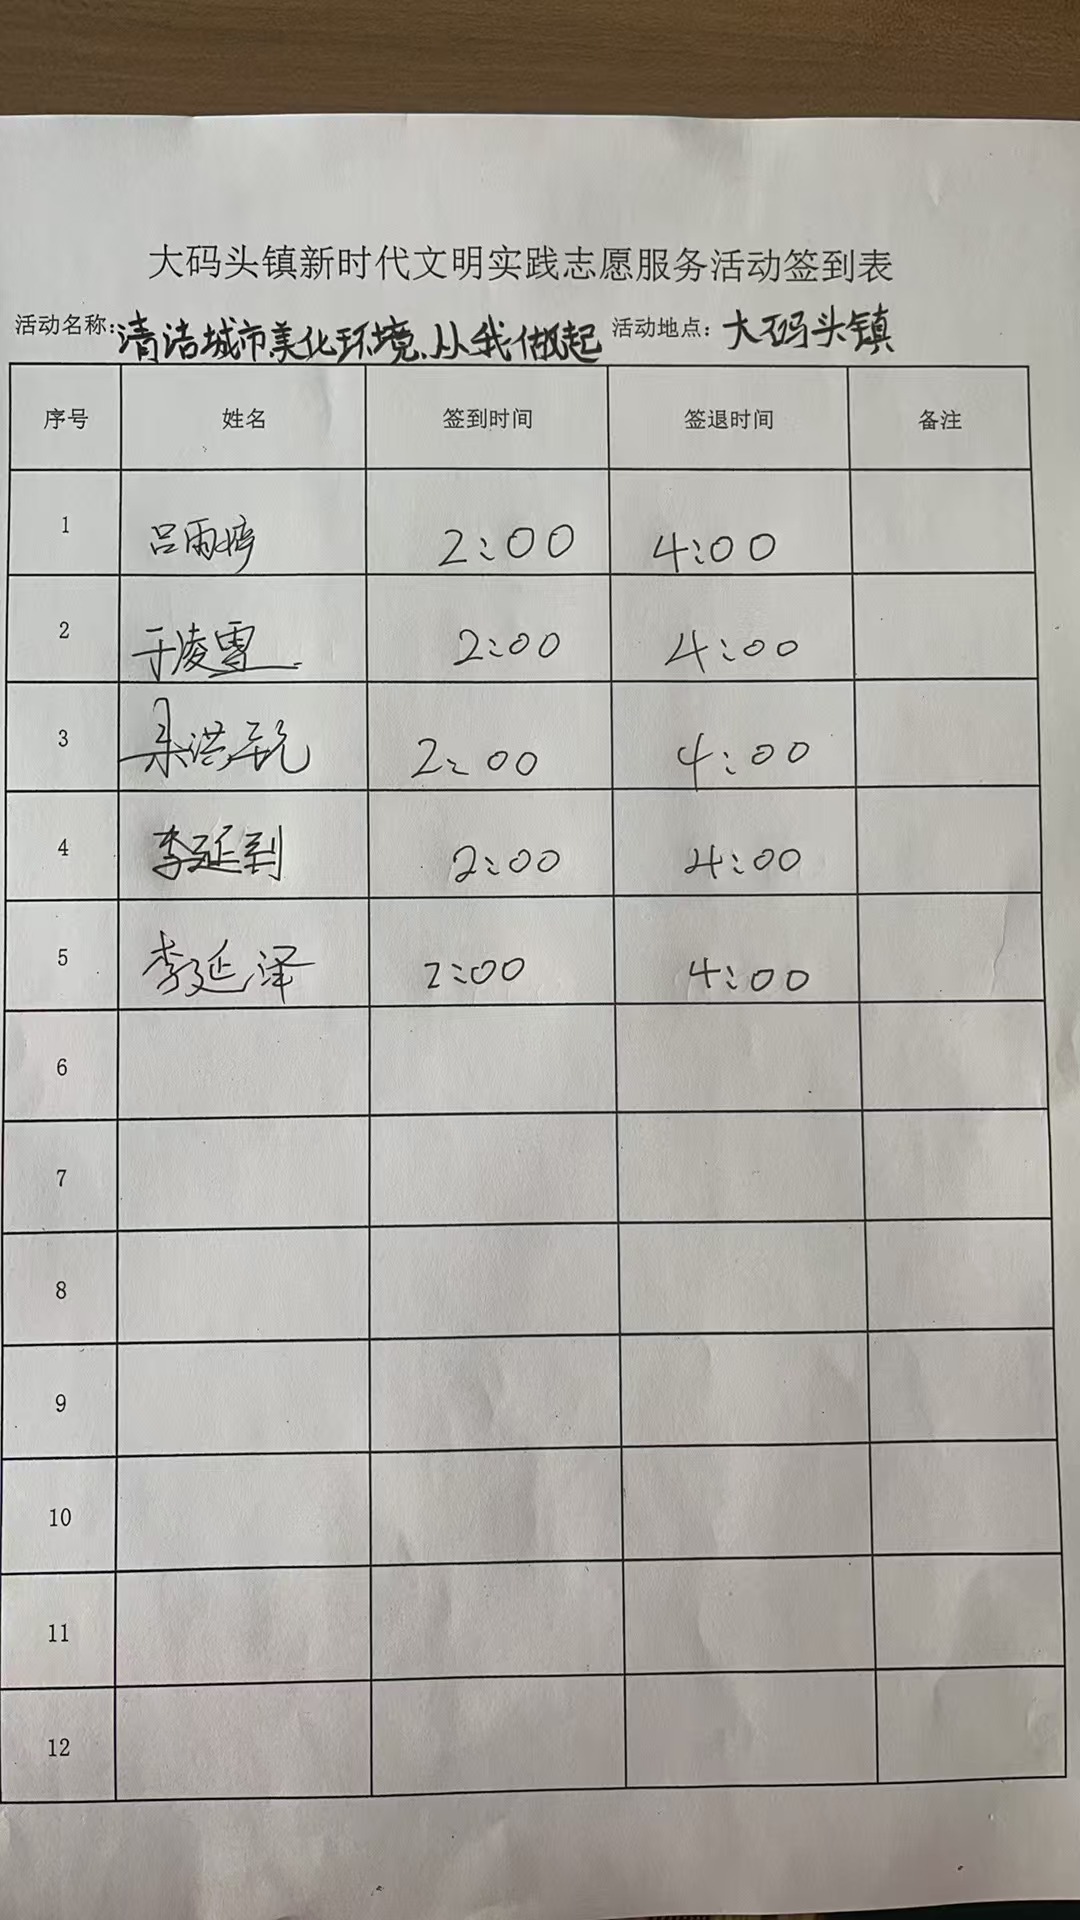 大码头镇新时代文明实践志愿服务活动签到表
活动名称：清洁城市美化环境、从我做起 活动地点：大码头镇
序号 姓名 签到时间 签退时间 备注
1 吕雨婷 2:00 4:00
2 于凌雪 2:00 4:00
3 2:00 4:00
4 李延到 2:00 4:00
5 李延泽 2:00 4:00
6
7
8
9
10
11
12